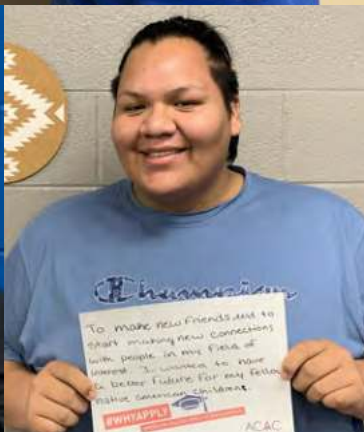 Champion
To make new friends and to
start making new connections
with people in my field of
interest I wanted to have
a better future for my fellow
native american children.
#WHYAPPLY
ACAC